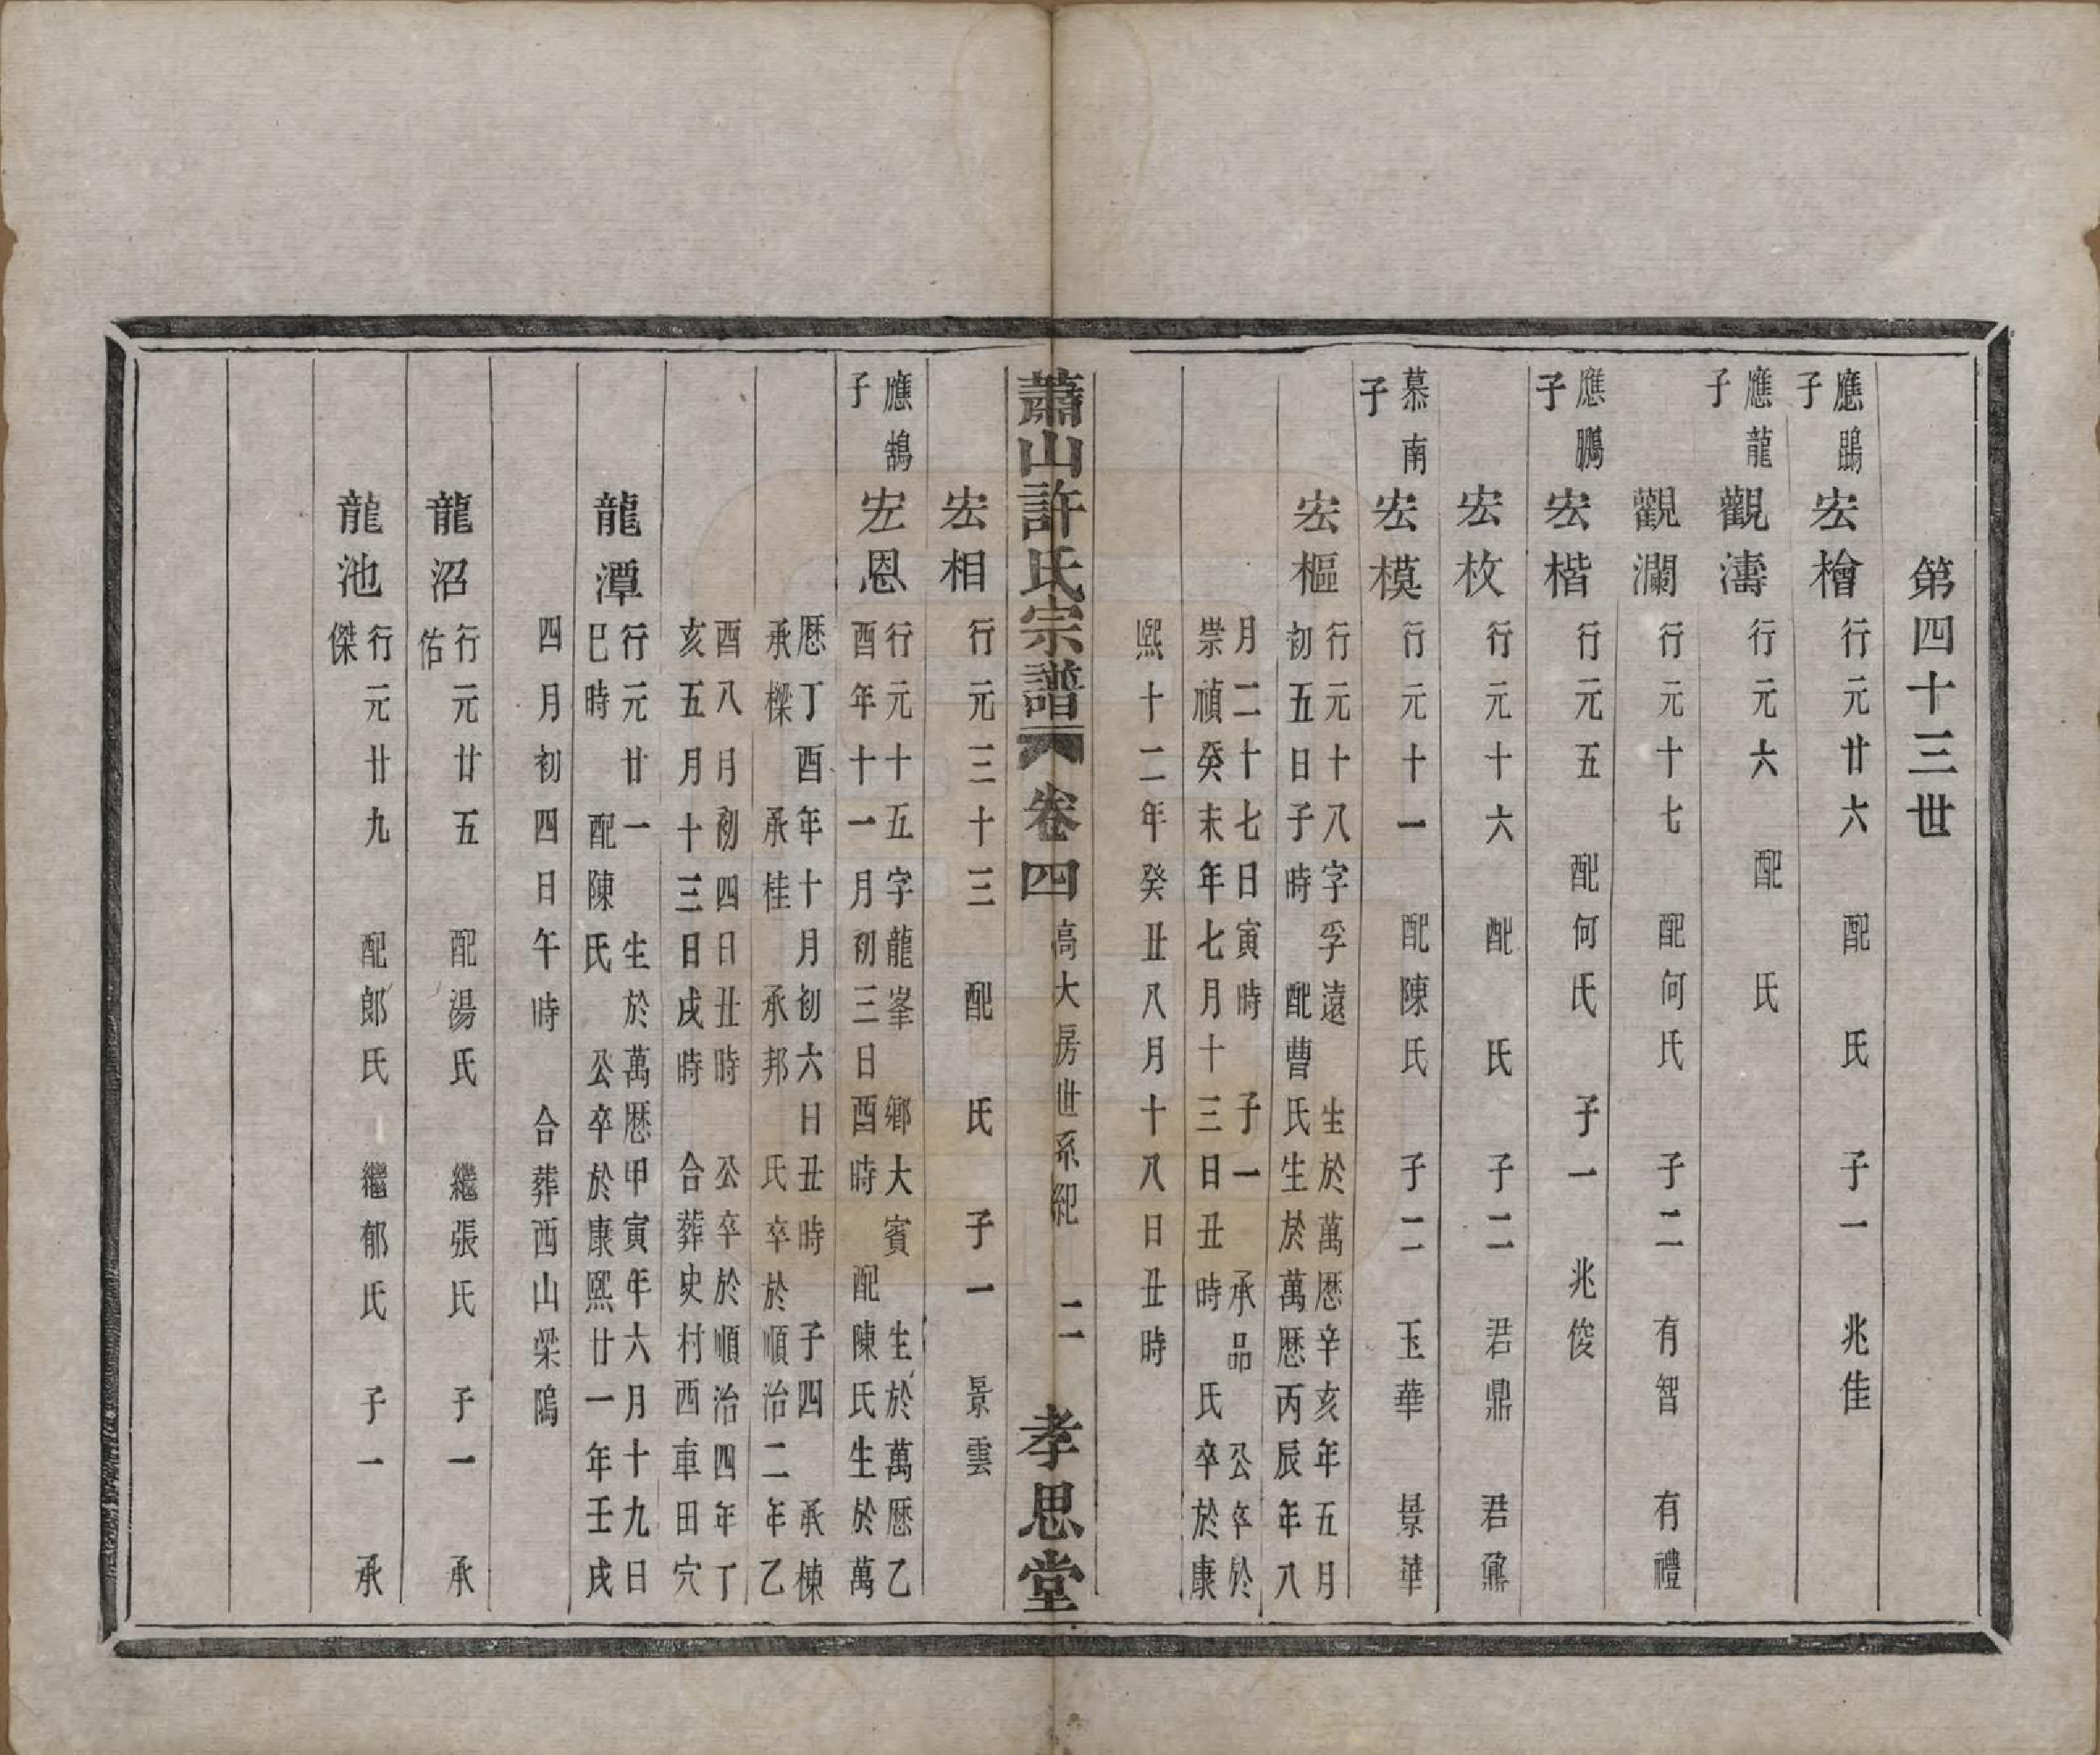 第四十三世
應鵾子
宏檜
行元廿六　配　氏　子一　兆佳
應龍子
觀濤
行元六　配　氏
觀瀾
行元十七　配何氏　子二　有智　有禮
應鵬子
宏楷
行元五　配何氏　子一　兆俊
宏枚
行元十六　配　氏　子二　君鼎　君鼐
慕南子
宏模
行元十一　配陳氏　子二　玉華　景華
宏樞
行元十八字孚遠　生於萬歷辛亥年五月
初五日子時　配曹氏生於萬歷丙辰年八
月二十七日寅時　子一　承品　公卒於
崇禎癸未年七月十三日丑時　氏卒於康
熙十二年癸丑八月十八日丑時
蕭山許氏宗譜　卷四　高大房世系紀　二　孝思堂
宏相
行元三十三　配　氏　子一　景雲
應鵠子
宏恩
行元十五字龍峯　鄉大賓　生於萬歷乙
酉年十一月初三日酉時　配陳氏生於萬
歷丁酉年十月初六日丑時　子四　承棟
承樑　承桂　承邦　氏卒於順治二年乙
酉八月初四日丑時　公卒於順治四年丁
亥五月十三日戌時　合葬史村西車田穴
龍潭
行元廿一　生於萬歷甲寅年六月十九日
巳時　配陳氏　公卒於康熙廿一年壬戌
四月初四日午時　合葬西山梁隖
龍沼
行元廿五　配湯氏　繼張氏　子一　承
佑
龍池
行元廿九　配郎氏　繼郁氏　子一　承
傑